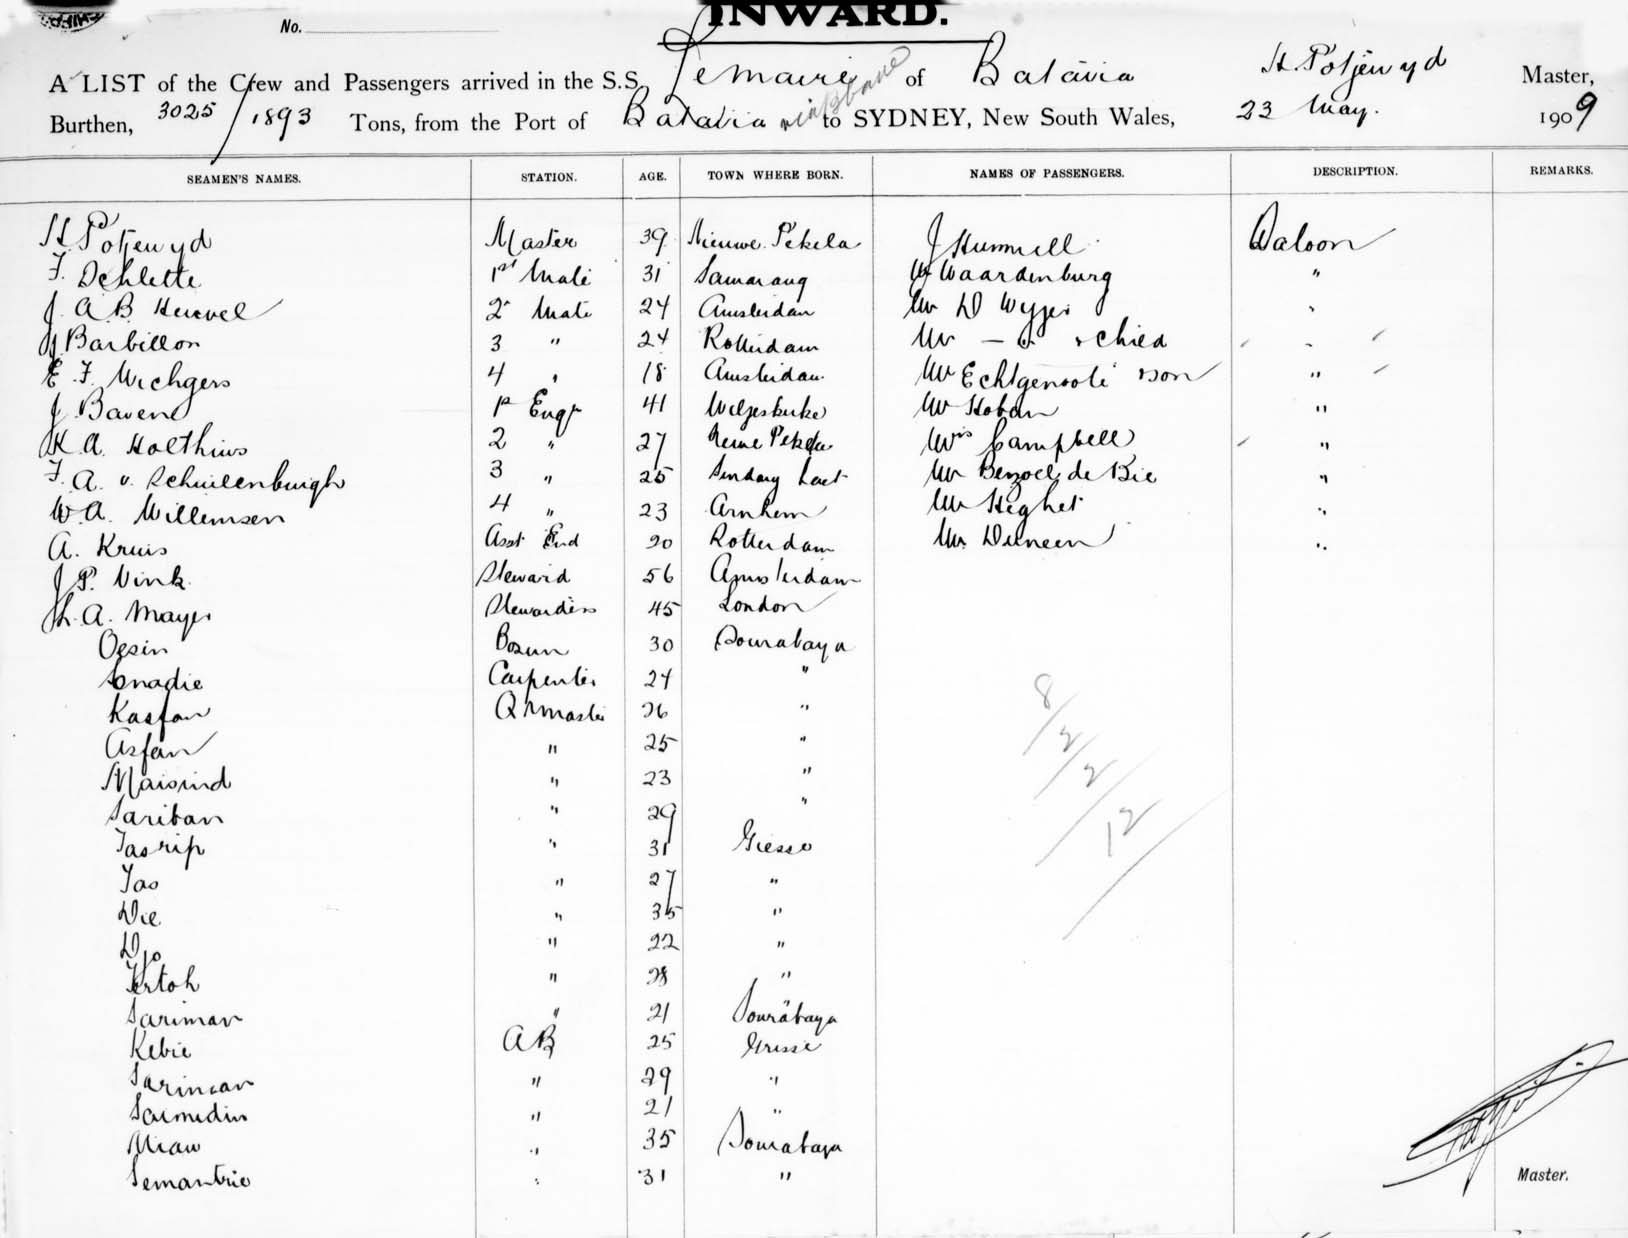 INWARD.
No.
A LIST of the Crew and Passengers arrived in the S.S. Lemaire of Batavia H. Potjewyd Master,
Burthen, 3025/1893 Tons, from the Port of Batavia via Brisbane to SYDNEY, New South Wales, 23 May. 1909
SEAMEN'S NAMES. STATION. AGE. TOWN WHERE BORN. NAMES OF PASSENGERS. DESCRIPTION. REMARKS.
H. Potjewyd Master 39 Nieuwe Pekela J Hummell Saloon
F. Dehlette 1st Mate 31 Samarang Waardenburg "
J. A. B. Heuvel 2 Mate 24 Amsterdam Mr D Wyzer "
J Barbillon 3 " 24 Rotterdam Mr — " & child "
E. F. Wichgers 4 " 18 Amsterdam Mr Echtgenoote & son "
J Bavene 1st Engr 41 Mr Hoban "
K. A. Holthuis 2 " 27 Pekela Mrs Campbell "
F. A. v. Schuilenburgh 3 " 25 Mr de Bie "
W. A. Willemsen 4 " 23 Arnhem Mr Heghet "
A. Kruis Asst End 20 Rotterdam Mr Duneen "
J P. Vink Steward 56 Amsterdam
A. Mayer Stewardess 45 London
Oesin Bosun 30 Sourabaya
Snadie Carpenter 24 "
Kasfan Qrmaster 26 "
Asfan " 25 "
Maisind " 23 "
Sariban " 29 "
Tasrip " 31 Giesse
Tas " 27 "
Die " 35 "
Djo " 22 "
Kertoh " 28 "
Sariman " 21 Sourabaya
Kebie AB 25 Grisse
Sariman " 29 "
Saimidin " 21 "
Miaw " 35 Sourabaya
Semantrie " 31 "
8/2/2/12
Master.